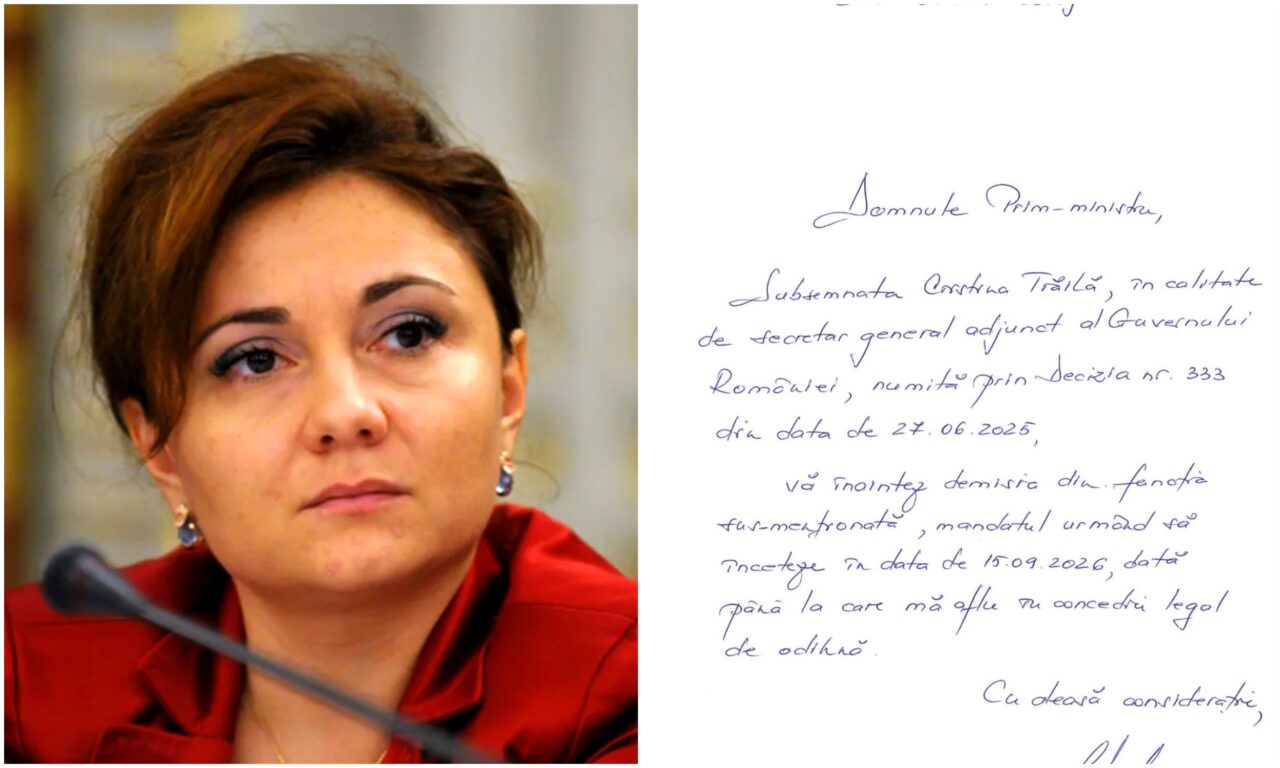 Domnule Prim-ministru,
Subsemnata Cristina Trăilă, în calitate
de secretar general adjunct al Guvernului
României, numită prin Decizia nr. 333
din data de 27.06.2025,
vă înaintez demisia din funcția
sus-menționată, mandatul urmând să
înceteze în data de 15.09.2026, dată
până la care mă aflu în concediu legal
de odihnă.
Cu aleasă considerație,